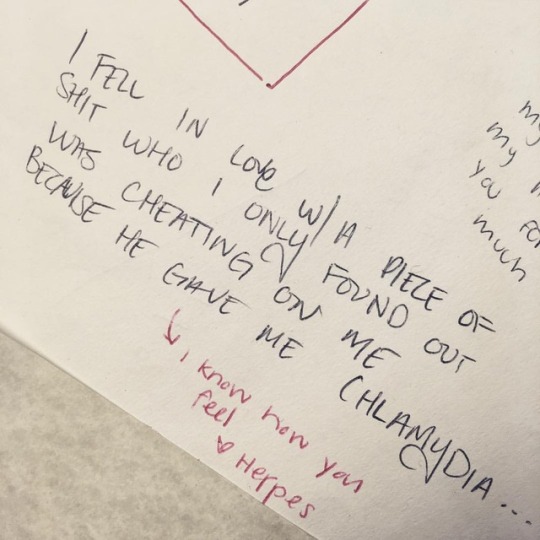 I FELL IN LOVE W/ A PIECE OF
SHIT WHO I ONLY FOUND OUT
WAS CHEATING ON ME
BECAUSE HE GAVE ME CHLAMYDIA...
I know how you
feel
Herpes
my
my
you for
much